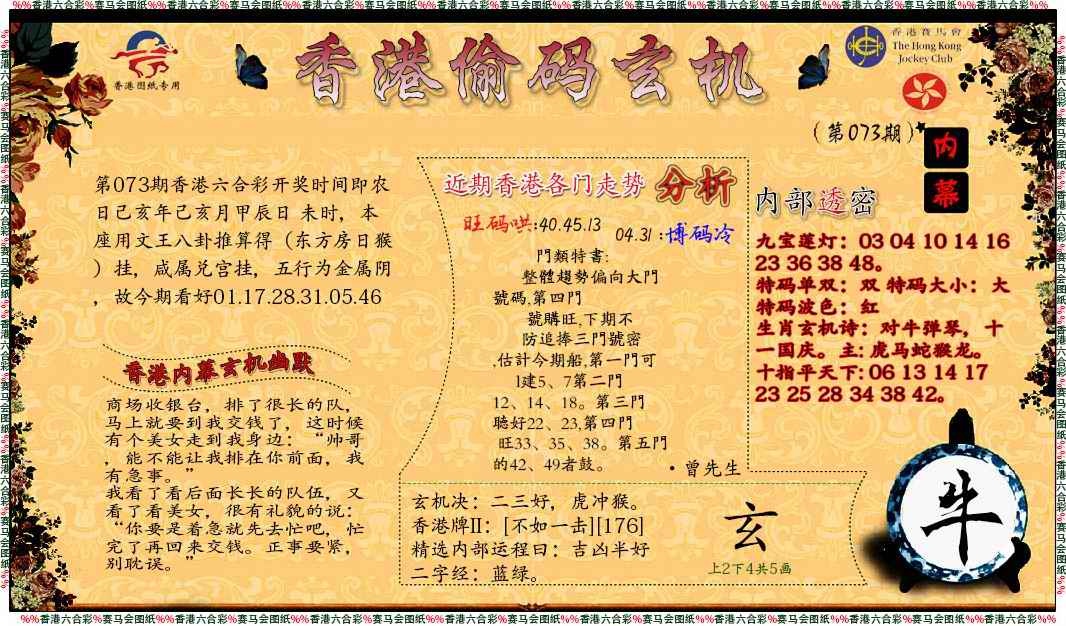 %%香港六合彩%赛马会图纸%%香港六合彩%赛马会图纸%%香港六合彩%赛马会图纸%%香港六合彩%赛马会图纸%%香港六合彩%赛马会图纸%%香港六合彩%赛马会图纸%%香港六合彩%%
香港图纸专用
香港偷码玄机
香港賽馬會
The Hong Kong
Jockey Club
(第073期)
内
幕
第073期香港六合彩开奖时间即农
日己亥年己亥月甲辰日 未时，本
座用文王八卦推算得（东方房日猴
）挂，咸属兑宫挂，五行为金属阴
，故今期看好01.17.28.31.05.46
香港内幕玄机幽默
商场收银台，排了很长的队，
马上就要到我交钱了，这时候
有个美女走到我身边：“帅哥
，能不能让我排在你前面，我
有急事。”
我看了看后面长长的队伍，又
看了看美女，很有礼貌的说：
“你要是着急就先去忙吧，忙
完了再回来交钱。正事要紧，
别耽误。”
近期香港各门走势 分析
旺码哄:40.45.13
04.31 :博码冷
門類特書:
整體趨勢偏向大門
號碼,第四門
號購旺,下期不
防追捧三門號密
,估計今期船,第一門可
1建5、7第二門
12、14、18。第三門
聽好22、23,第四門
旺33、35、38。第五門
的42、49者鼓。
·曾先生
玄机决：二三好，虎冲猴。
香港牌II：[不如一击][176]
精选内部运程曰：吉凶半好
二字经：蓝绿。
玄
上2下4共5画
内部透密
九宝莲灯：03 04 10 14 16
23 36 38 48。
特码单双：双 特码大小：大
特码波色：红
生肖玄机诗：对牛弹琴，十
一国庆。主: 虎马蛇猴龙。
十指平天下: 06 13 14 17
23 25 28 34 38 42。
牛
%%香港六合彩%赛马会图纸%%香港六合彩%赛马会图纸%%香港六合彩%赛马会图纸%%香港六合彩%赛马会图纸%%香港六合彩%赛马会图纸%%香港六合彩%赛马会图纸%%香港六合彩%%